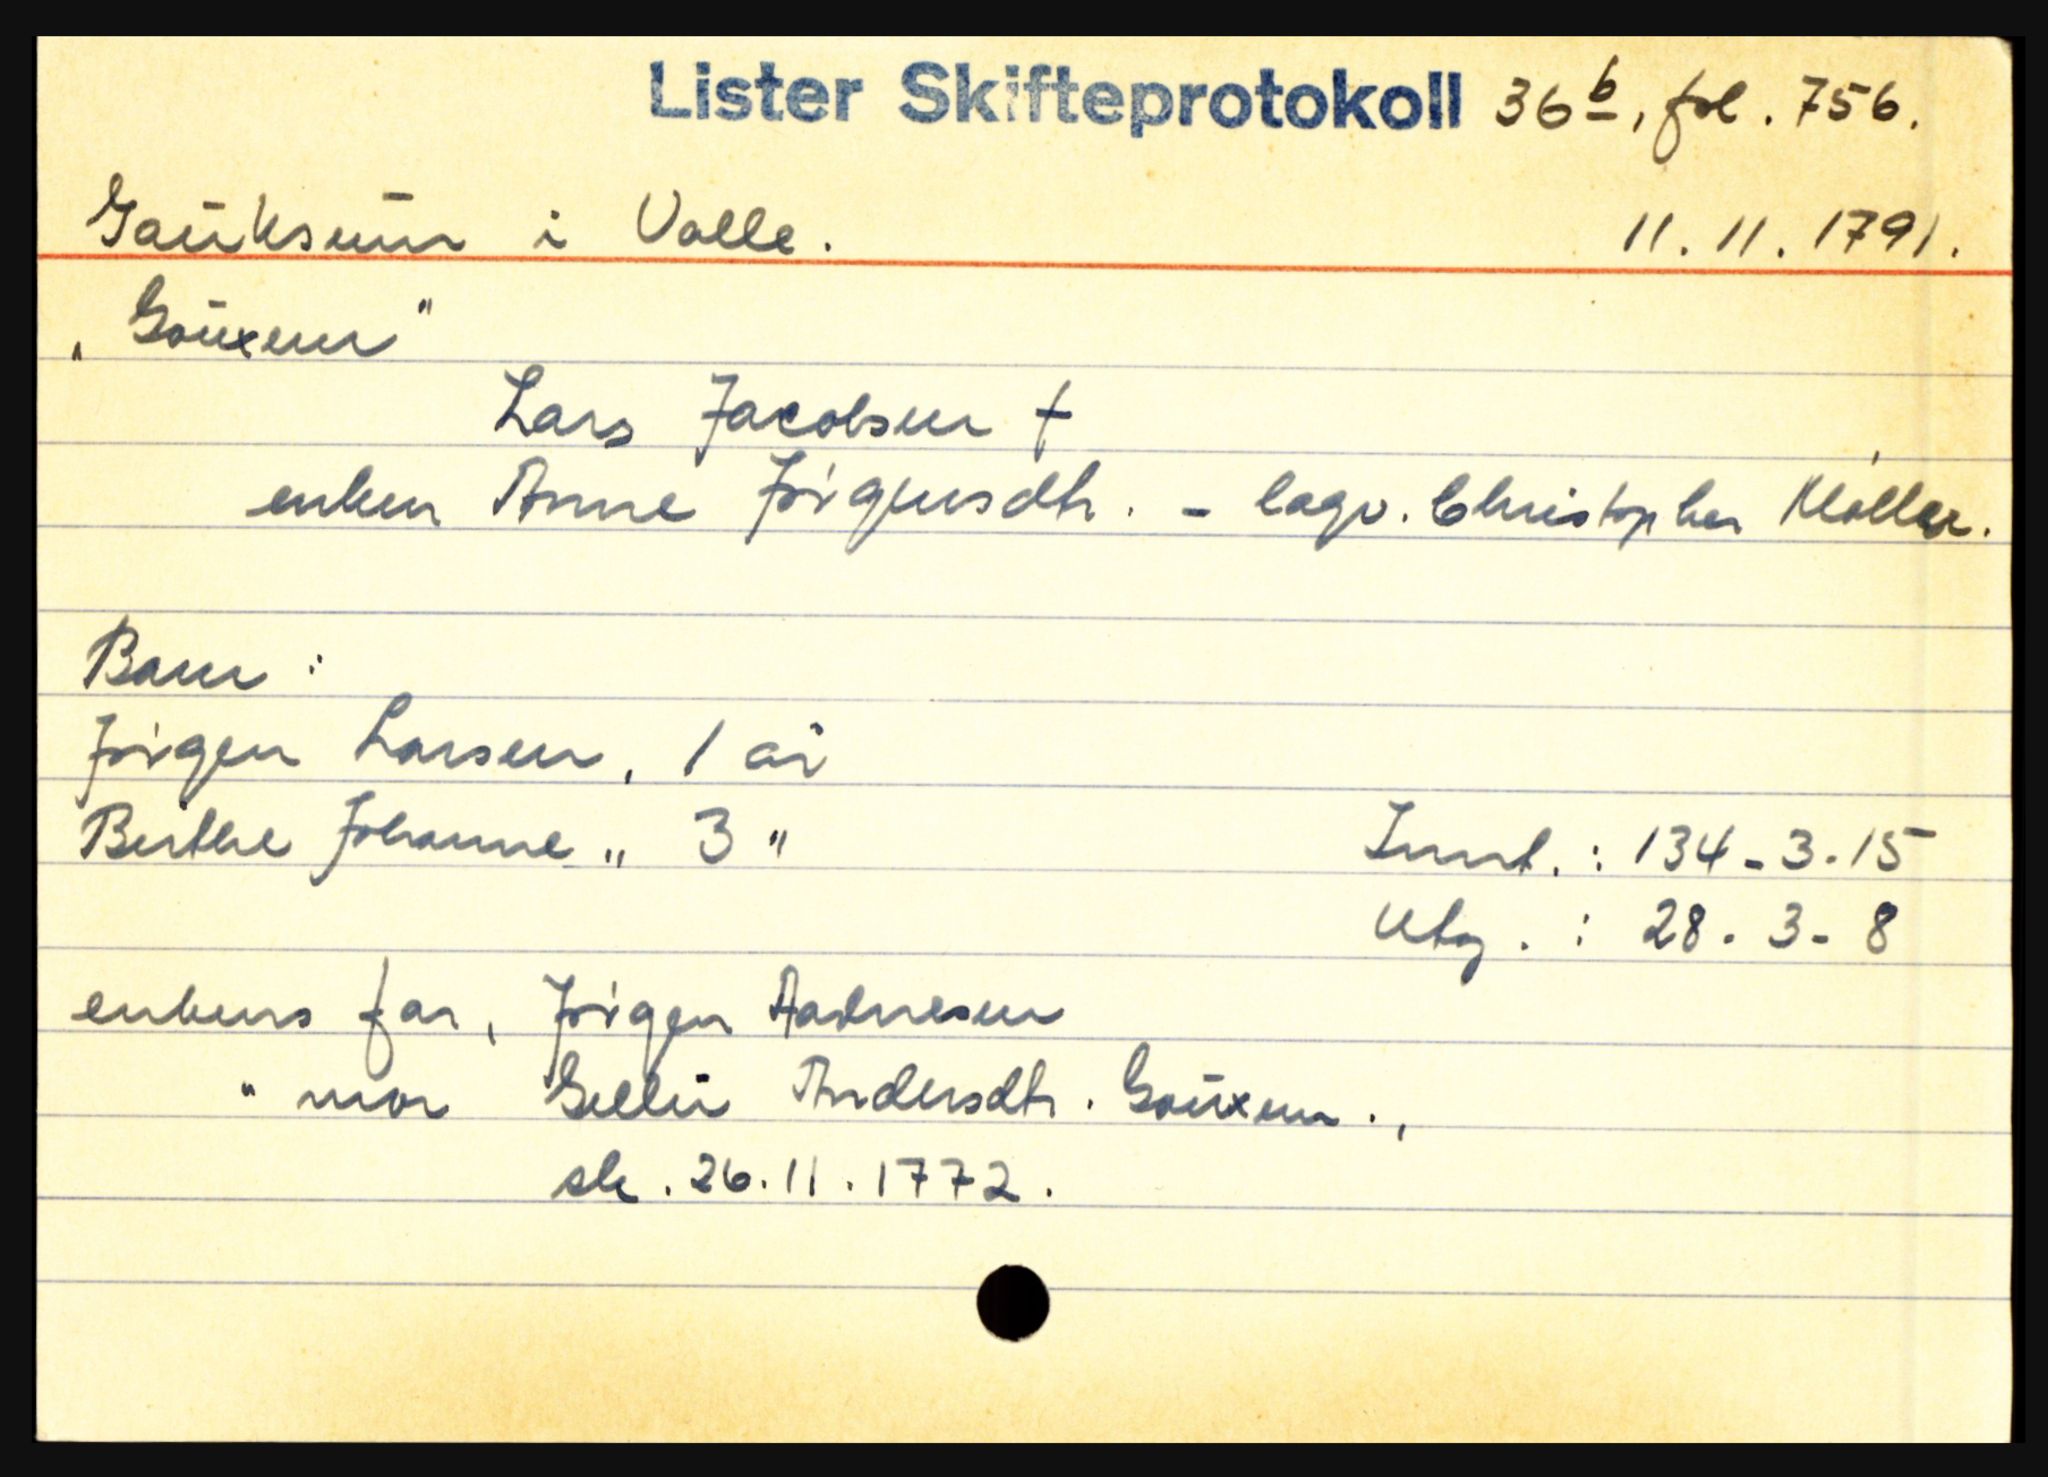 Lister Skifteprotokoll 36b, fol. 756.
Gauksum i Valle. 11.11.1791.
„Gouxem"
Lars Jacobsen †
enken Anne Jörgensdtr. - lagv. Christopher Möller.
Barn:
Jörgen Larsen, 1 år
Berthe Johanne " 3 "
Innt. : 134-3-15
Utg. : 28-3-8
enkens far, Jörgen Aadnesen
" mor Andersdtr. Gouxem.,
sk. 26.11.1772.